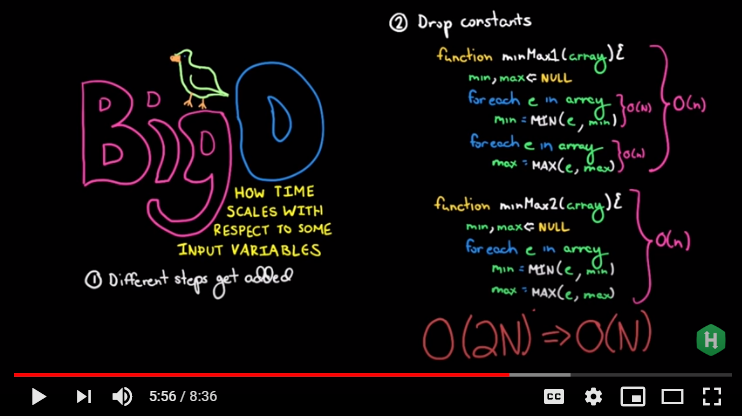 Big O
HOW TIME
SCALES WITH
RESPECT TO SOME
INPUT VARIABLES
① Different steps get added
② Drop constants
function minMax1(array){
min, max <= NULL
foreach e in array
min = MIN(e, min)
} O(N)
foreach e in array
max = MAX(e, max)
} O(n)
} O(n)
function minMax2(array){
min, max <= NULL
foreach e in array
min = MIN(e, min)
max = MAX(e, max)
} O(n)
O(2N) => O(N)
H
5:56 / 8:36
CC